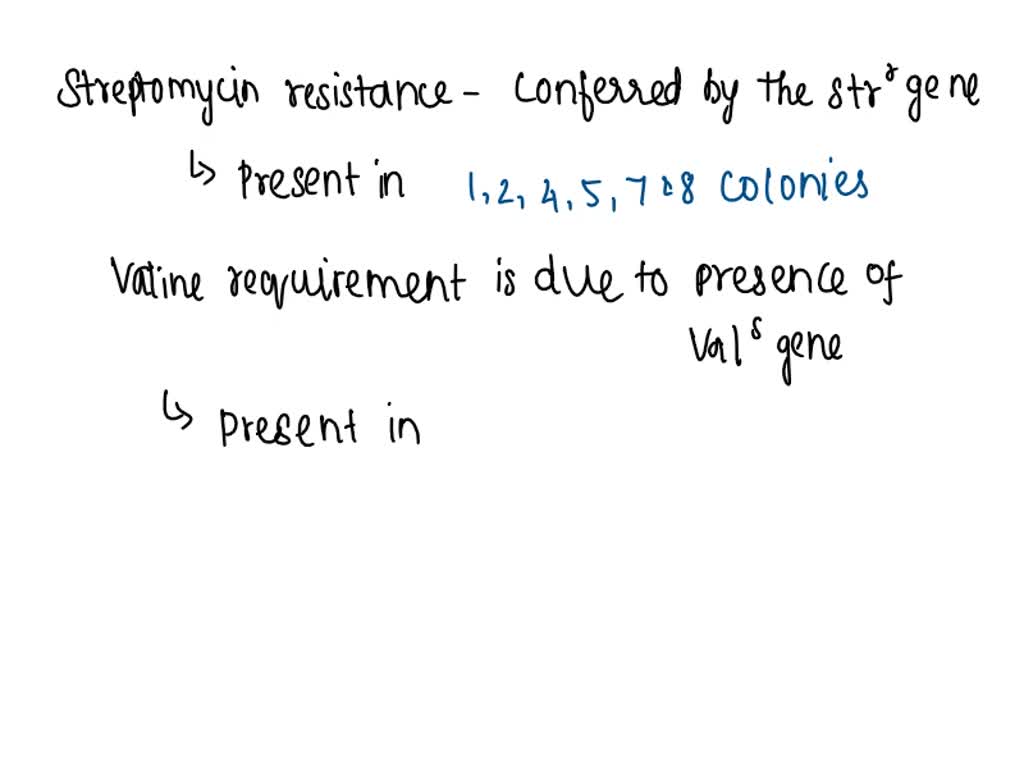 Streptomycin resistance - Conferred by the strʳ gene
↳ Present in 1, 2, 4, 5, 7 & 8 Colonies
Valine requirement is due to presence of
Valˢ gene
↳ present in